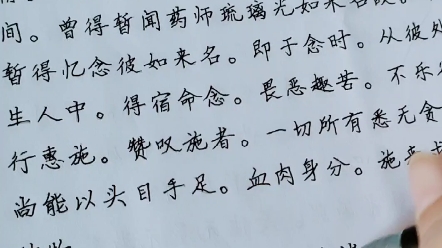 间。曾得暂闻药师琉璃光如来名
暂得忆念彼如来名。即于念时。从彼处
生人中。得宿命念。畏恶趣苦。不乐
行惠施。赞叹施者。一切所有悉无贪
尚能以头目手足。血肉身分。施